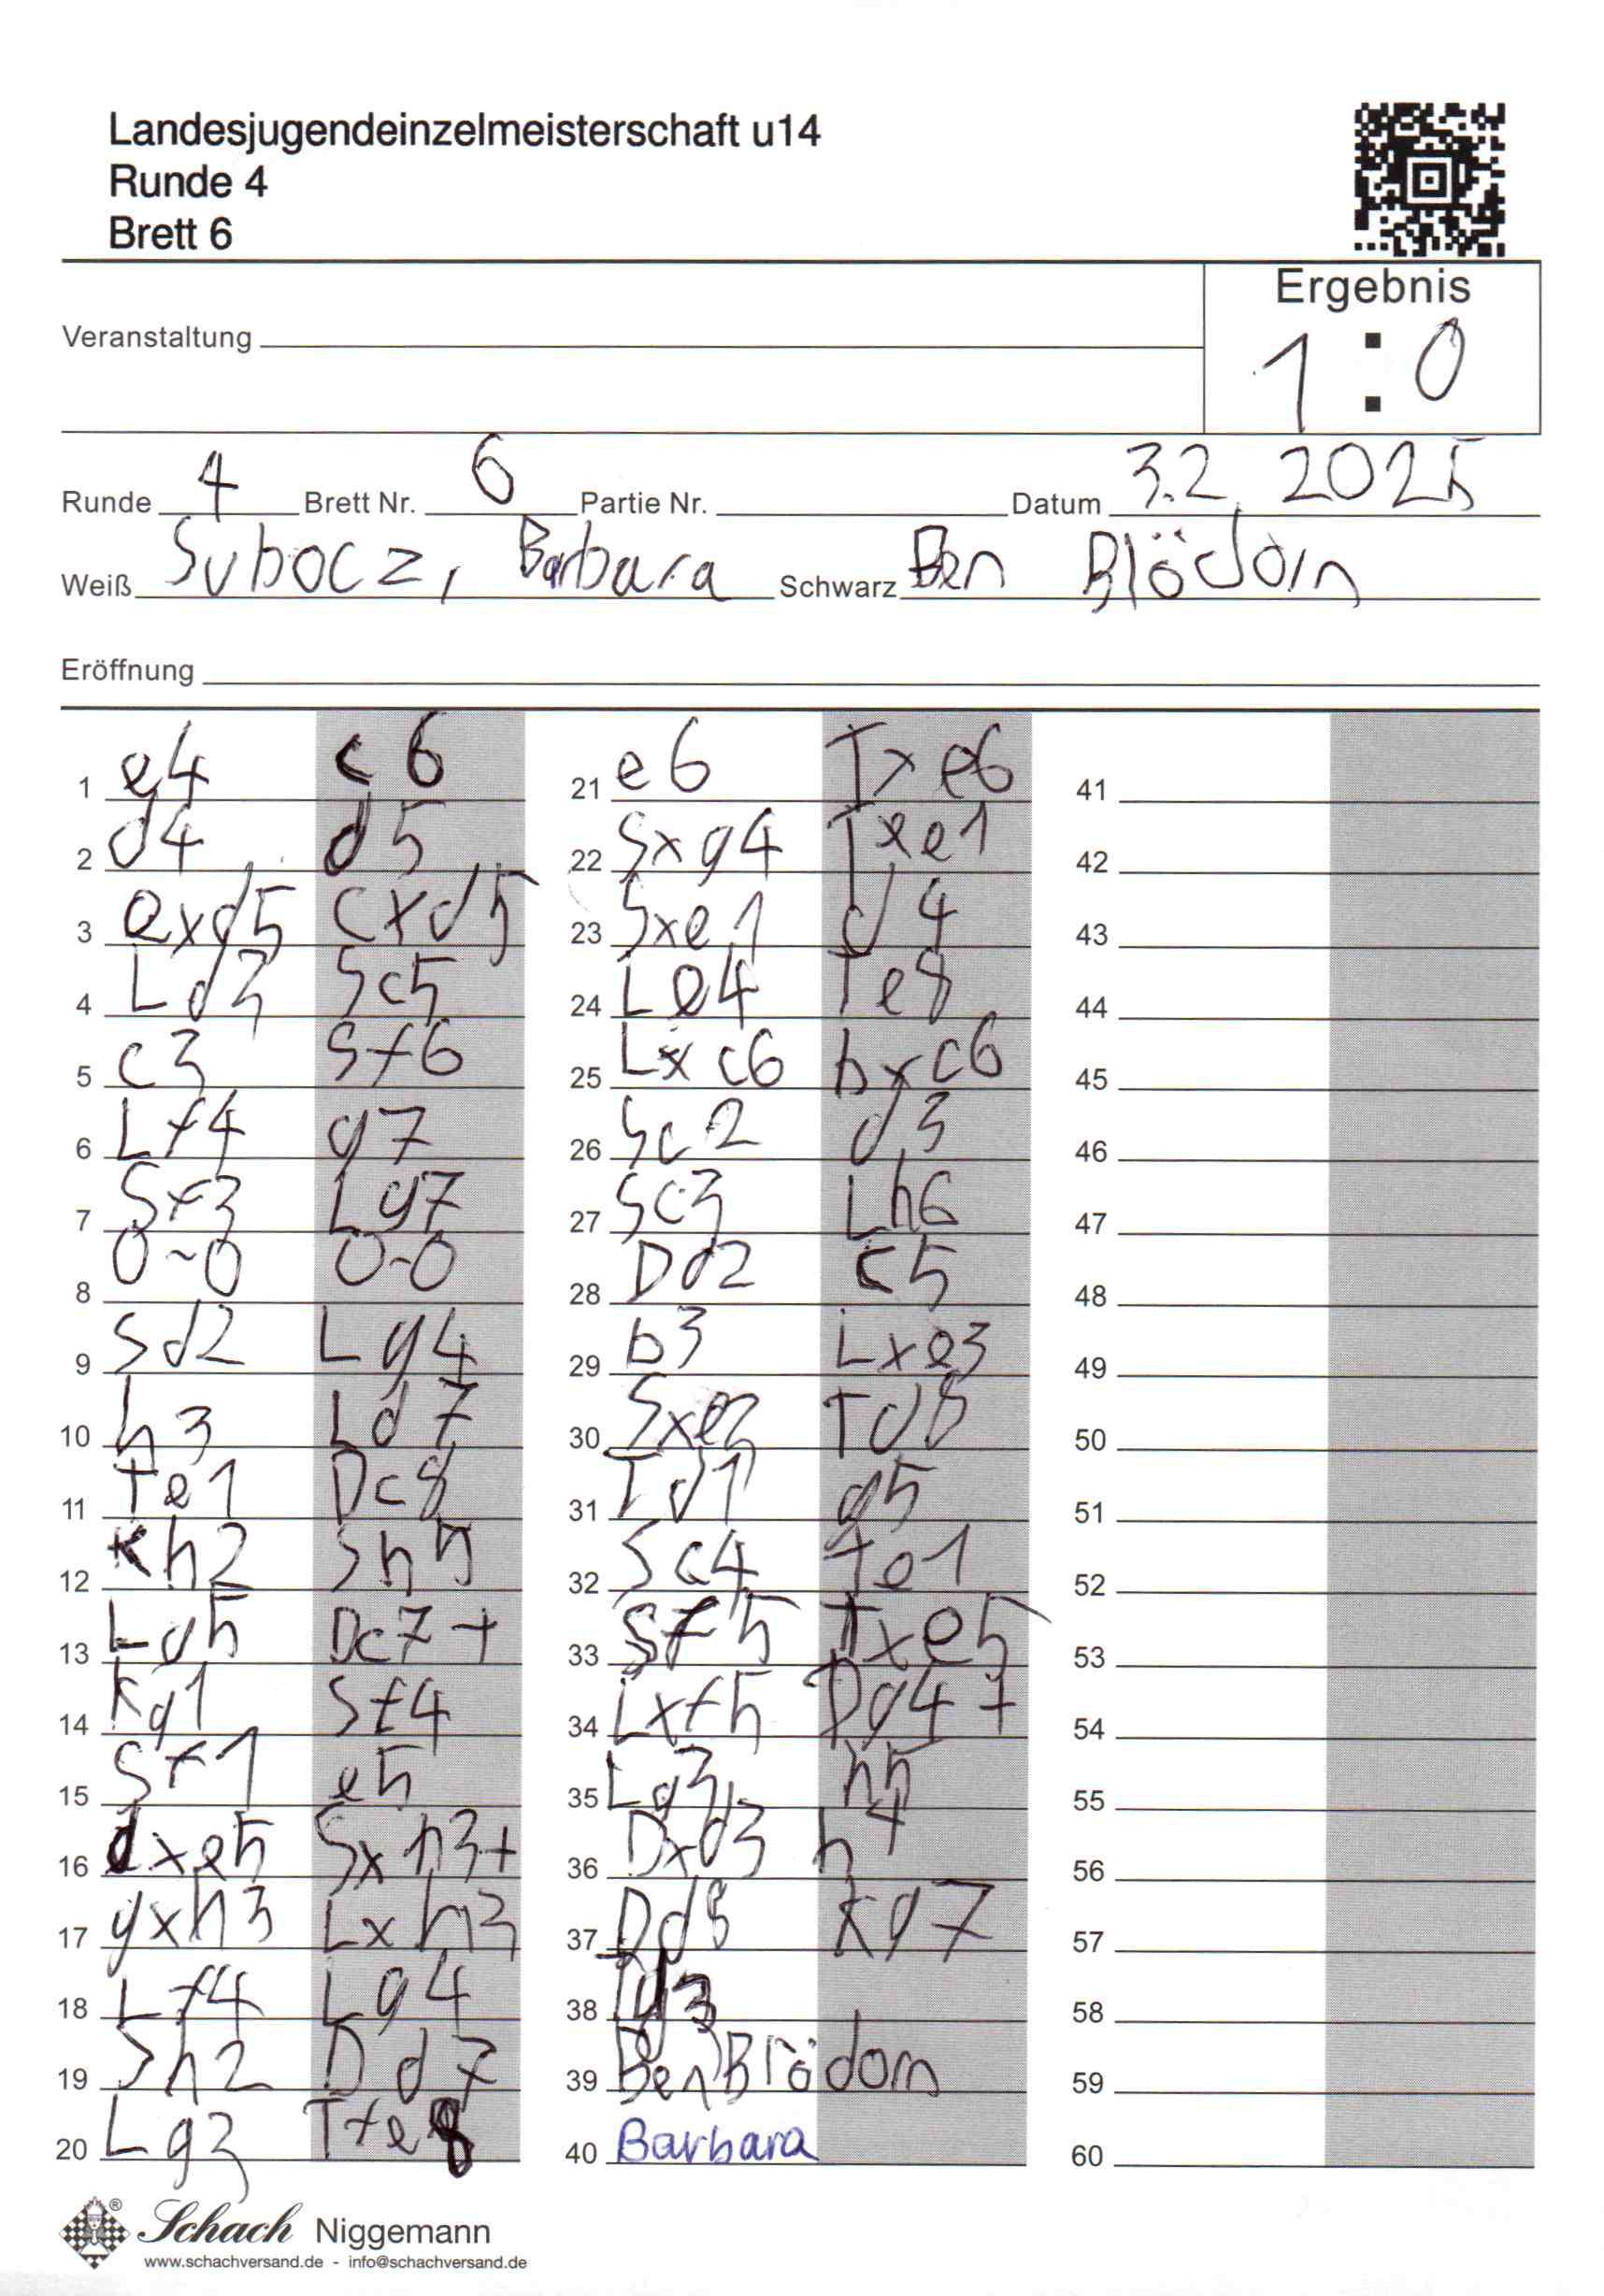 Landesjugendeinzelmeisterschaft u14
Runde 4
Brett 6
Ergebnis
1 : 0
Veranstaltung
Runde 4 Brett Nr. 6 Partie Nr. Datum 3.2. 2025
Weiß Subocz, Barbara Schwarz Ben Blödorn
Eröffnung
1 e4 c6
2 d4 d5
3 exd5 cxd5
4 Ld3 Sc5
5 c3 Sf6
6 Lf4 g7
7 Sf3 Lg7
8 0-0 0-0
9 Sd2 Lg4
10 h3 Ld7
11 Te1 Dc8
12 Kh2 Sh5
13 Lg5 Dc7+
14 Kg1 Sf4
15 Sf1 e5
16 dxe5 Sxh3+
17 gxh3 Lxh3
18 Lf4 Lg4
19 Sh2 Dd7
20 Lg3 Tfe8
21 e6 Txe6
22 Sxg4 Txe1
23 Sxe1 d4
24 Le4 Te8
25 Lxc6 bxc6
26 Sc2 d3
27 Se3 Lh6
28 Dd2 c5
29 b3 Lxe3
30 Sxe3 Td8
31 Td1 g5
32 Sc4 Te1
33 Sf5 Txe5
34 Lxf5 Dg4+
35 Lg3 h5
36 Dxd3 h4
37 Dd8 Kg7
38
39 Ben Blödorn
40 Barbara
41
42
43
44
45
46
47
48
49
50
51
52
53
54
55
56
57
58
59
60
Schach Niggemann
www.schachversand.de - info@schachversand.de